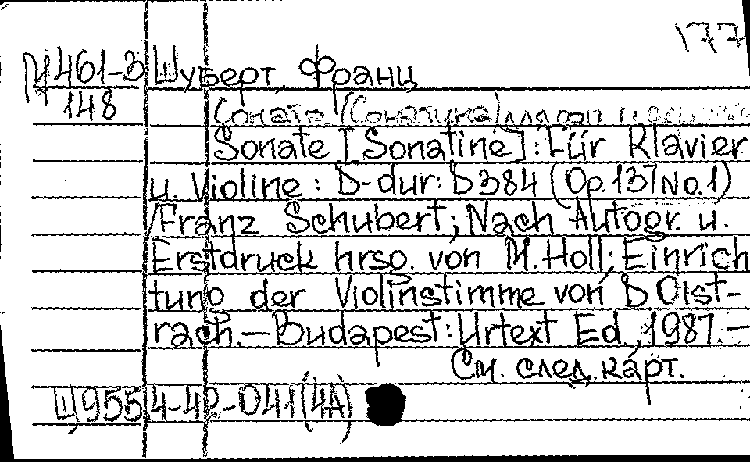 177
М461-3 Шуберт, Франц
148 Соната (Сонатина) для фп. и
Sonate [Sonatine]: Für Klavier
u. Violine: D-dur: D384 (Op.137No.1)
/Franz Schubert; Nach Autogr. u.
Erstdruck hrsg. von M.Holl; Einrich
tung der Violinstimme von D Oist-
rach.—Budapest: Urtext Ed., 1987.—
См. след. карт.
Щ9554-42-041(4А)